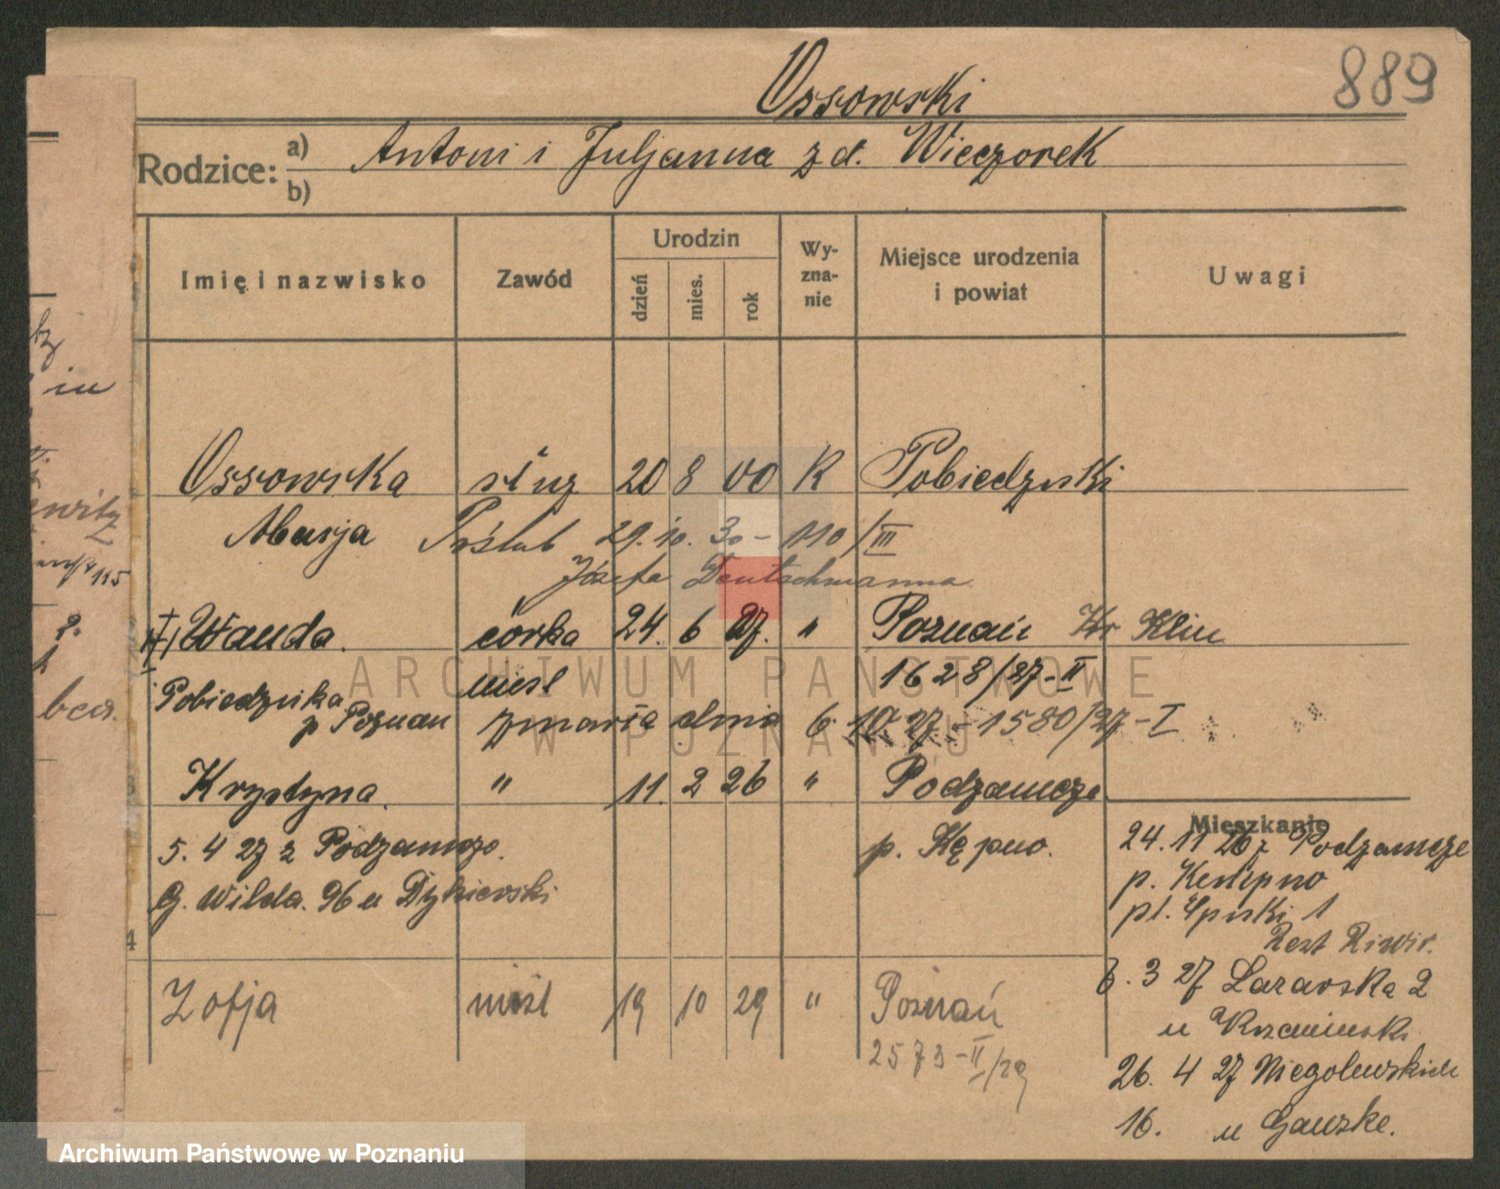 889
Ossowski
Rodzice: a) b) Antoni i Juljanna z d. Wieczorek
Imię i nazwisko Zawód Urodzin dzień mies. rok Wyznanie Miejsce urodzenia i powiat Uwagi
Ossowska służ 20 8 00 K Pobiedziski
Marja Poślub 29. 10. 30 - 110/III
Józefa Deutschmanna
Wanda. córka 24. 6 27. " Poznań Kr Klin
nieśl 1628/27-II
Pobiedziska
p Poznań zmarła dnia 6 10 27 - 1580/27-I
Krystyna " 11. 2 26 " Podzamcze
p. Kępno.
5. 4 27 z Podzamcze.
G. Wilda. 96 u
Zofja nieśl 19 10 29 " Poznań
2573-II/29
Mieszkanie
24. 11 26 z Podzamcze
p. Kempno
pl. 1
6. 3 27 Lazarska 2
u
26. 4 27 Niegolewskich
16. u Gauzke.
in
115
ARCHIWUM PAŃSTWOWE
W POZNANIU
Archiwum Państwowe w Poznaniu